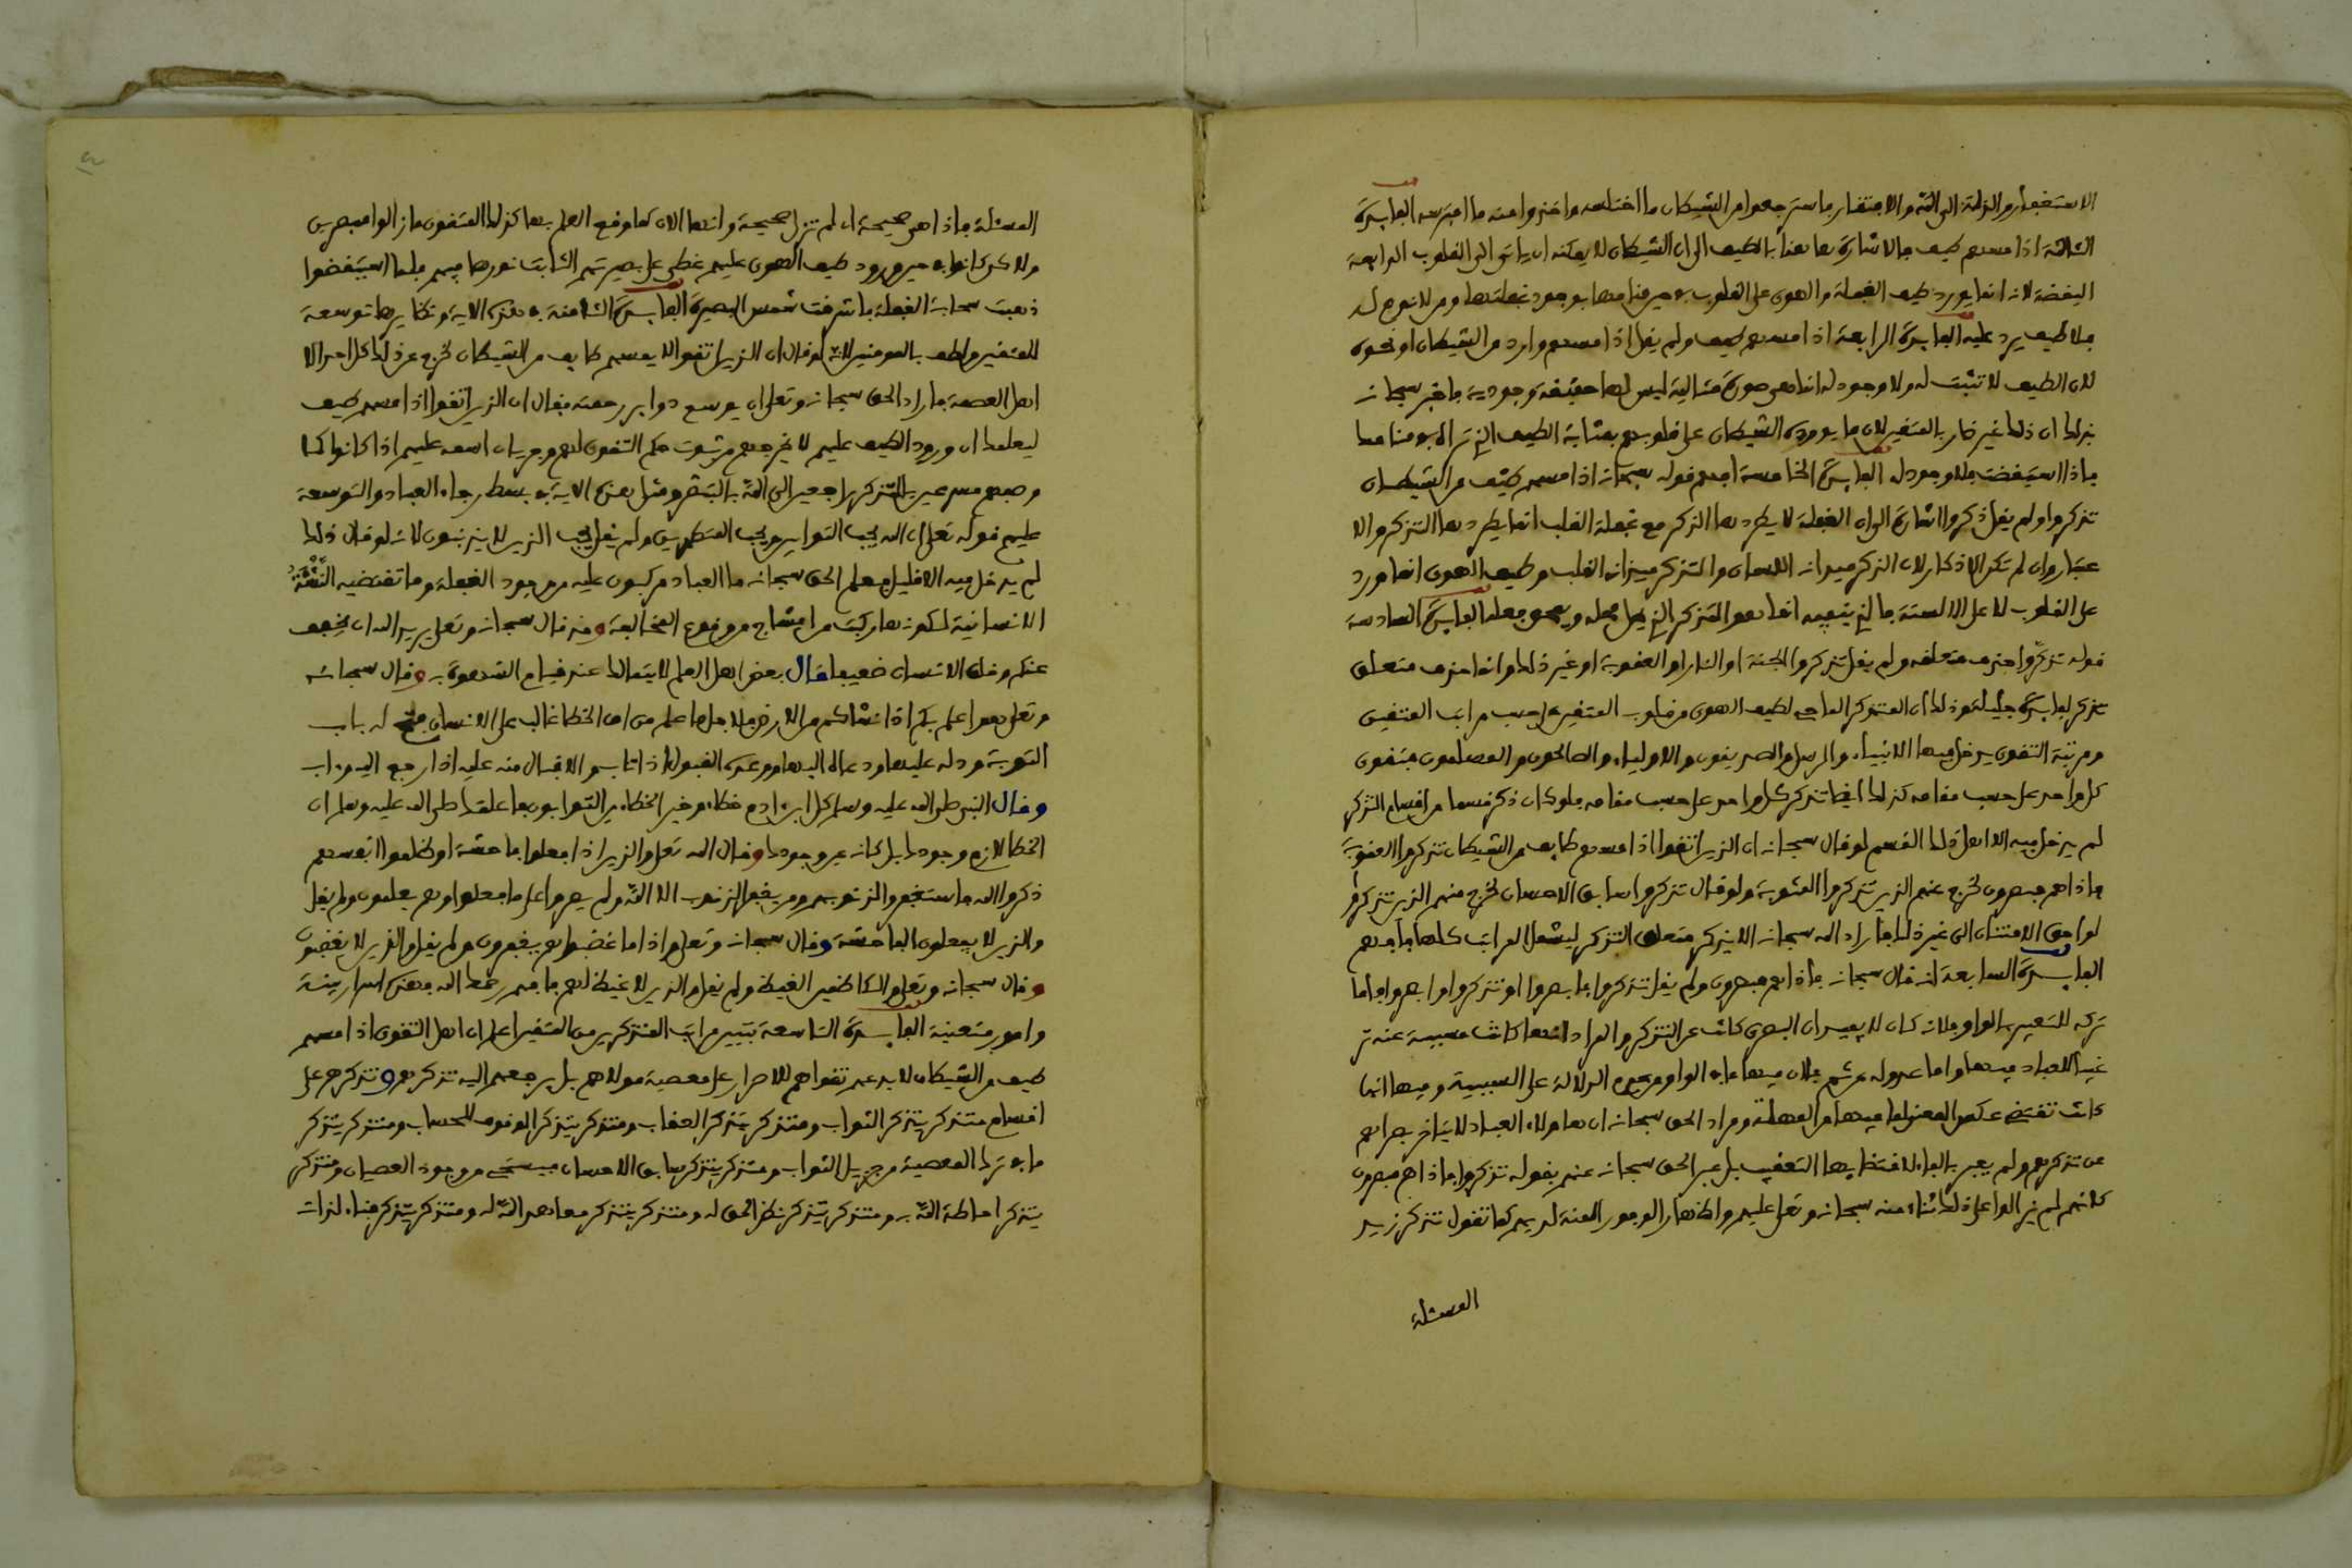 الاستغفار والذلة إلى الله والافتقار فاسترجعوا من الشيطان ما اختلسه واخذوا منه ما افترسه الفايدة
الثالثة اذا مسهم طيف فالاشارة هاهنا بالطيف الى ان الشيطان لا يمكنه ان ياتى الى القلوب الدايمة
اليقظة لانه انما يورد طيف الغفلة والهوى على القلوب في حين منامها بوجود غفلتها ومن لا نوم له
فلا طيف يرد عليه الفايدة الرابعة اذا مسهم طيف ولم يقل اذا مسهم وارد من الشيطان او نحوه
لان الطيف لا تثبت له ولا وجود له انما هي صورة مثالية ليس لها حقيقة وجودية فاخبر سبحانه
بذلك ان ذلك غير ضار بالمتقين لان ما يورده الشيطان على قلوبهم بمثابة الطيف الذي تراه في منامك
فاذا استيقضت فلا وجود له الفايدة الخامسة افهم قوله سبحانه اذا مسهم طيف من الشيطان
تذكروا ولم يقل ذكروا اشارة الى ان الغفلة لا يطردها الذكر مع غفلة القلب انما يطردها التذكر والا
عتبار وان لم تكن الاذكار لان الذكر ميدانه اللسان والتذكر ميدانه القلب وطيف الهوى انما ورد
على القلوب لا على الالسنة فالذي ينفيه انما هو التذكر الذي يحل محله ويمحق فعله الفايدة السادسة
قوله تذكروا حذف متعلقه ولم يقل تذكروا الجنة او النار او العقوبة او غير ذلك وانما حذف متعلق
تذكر لفايدة جليلة وذلك ان التذكر الماحي لطيف الهوى من قلوب المتقين على حسب مراتب المتقين
ومرتبة التقوى يدخل فيها الانبياء والرسل والصديقون والاولياء والصالحون والمسلمون فتقوى
كل واحد على حسب مقامه كذلك ايضا تذكر كل واحد على حسب مقامه فلو كان ذكر قسما من اقسام التذكر
لم يدخل فيه الا اهل ذلك القسم لو قال سبحانه ان الذين اتقوا اذا مسهم طايف من الشيطان تذكروا العقوبة
فاذا هم مبصرون لخرج عنهم الذين تذكروا المثوبة ولو قال تذكروا سابق الاحسان لخرج منهم الذين تذكروا
لواحق الامتنان الى غير ذلك فاراد الله سبحانه الا يذكر متعلق التذكر ليشمل المراتب كلها فافهم
الفايدة السابعة انه قال سبحانه فاذا هم مبصرون ولم يقل تذكروا فابصروا او تذكروا وابصروا فاما
تركه للتعبير بالواو فلانه كان لا يفيد ان البصرى كانت عن التذكر والمراد انها كانت مسببة عنه تر
غيبا للعباد فيها واما عدوله عن ثم فلان فيها ما في الواو من عدم الدلالة على السببية وفيها انها
كانت تقتضي عكس المعنى لما فيها من المهلة ومراد الحق سبحانه ان هاولاء العباد لا يتاخر بصراهم
عن تذكرهم ولم يعبر بالفاء لاقتضايها التعقيب بل عبر الحق سبحانه عنهم بقوله تذكروا فاذا هم مبصرون
كانهم لم يزالوا على ذلك ثناء منه سبحانه وتعلى عليهم واظهارا لوفور المنة لديهم كما تقول تذكر زيد
المسئلة
المسئلة فاذا هي صحيحة اي لم تزل صحيحة وانها الان كما وقع العلم بها كذلك المتقون ما زالوا مبصرين
ولاكن كانوا في حين ورود طيف الهوى عليهم غطى على بصيرتهم الثابت نورها فيهم فلما استيقضوا
ذهبت سحابة الغفلة فاشرقت شمس البصيرة الفايدة الثامنة في هذه الاية ونظايرها توسعة
للمتقين ولطف بالمومنين لانه لو قال ان الذين اتقوا لا يمسهم طايف من الشيطان لخرج عن ذلك كل احد الا
اهل العصمة فاراد الحق سبحانه وتعلى ان يوسع دواير رحمته فقال ان الذين اتقوا اذا مسهم طيف
ليعلمك ان ورود الطيف عليهم لا يخرجهم من ثبوت حكم التقوى لهم وجريان اسمه عليهم اذا كانوا كما
وصفهم مسرعين بالتذكر راجعين الى الله بالتبصر ومثل هذه الاية في بسط رجاء العباد والتوسعة
عليهم قوله تعلى ان الله يحب التوابين ويحب المتطهرين ولم يقل يحب الذين لا يذنبون لانه لو قال ذلك
لم يدخل فيه الا قليل فعلم الحق سبحانه ما العباد مركبون عليه من وجود الغفلة وما تقتضيه النشأة
الانسانية لكونها ركبت من امشاج من وقوع المخالفة وقد قال سبحانه وتعلى يريد الله ان يخفف
عنكم وخلق الانسان ضعيفا قال بعض اهل العلم لا يتمالك عند قيام الشهوة به وقال سبحانه
وتعلى هو اعلم بكم اذ انشاكم من الارض فلاجل ما علم من ان الخطا غالب على الانسان فتح له باب
التوبة ودله عليها ودعاه اليها ووعده القبول اذا تاب والاقبال منه عليه اذا رجع اليه واب
وقال النبي صلى الله عليه وسلم كل ابن ءادم خطاء وخير الخطاءين التوابون فاعلمك صلى الله عليه وسلم ان
الخطا لازم وجودك بل كانه عين وجودك وقال الله تعلى والذين اذا فعلوا فاحشة او ظلموا انفسهم
ذكروا الله فاستغفروا لذنوبهم ومن يغفر الذنوب الا الله ولم يصروا على ما فعلوا وهم يعلمون ولم يقل
والذين لا يفعلون الفاحشة وقال سبحانه وتعلى واذا ما غضبوا هم يغفرون ولم يقل والذين لا يغضبون
وقال سبحانه وتعلى والكاظمين الغيظ ولم يقل والذين لا غيظ لهم فافهم رحمك الله فهذه اسرار بينة
وامور متعينة الفايدة التاسعة تبيين مراتب المتذكرين من المتقين اعلم ان اهل التقوى اذا مسهم
طيف من الشيطان لا يدعهم تقواهم للاصرار على معصية مولاهم بل يرجعهم اليه تذكرهم وتذكرهم على
اقسام متذكر يتذكر الثواب ومتذكر يتذكر العقاب ومتذكر يتذكر الوقوف للحساب ومتذكر يتذكر
ما في ترك المعصية من جزيل الثواب ومتذكر يتذكر سابق الاحسان فيستحي من وجود العصيان ومتذكر
يتذكر احاطة الله به ومتذكر يتذكر نظر الحق له ومتذكر يتذكر معاهد الله له ومتذكر يتذكر فناء لذات